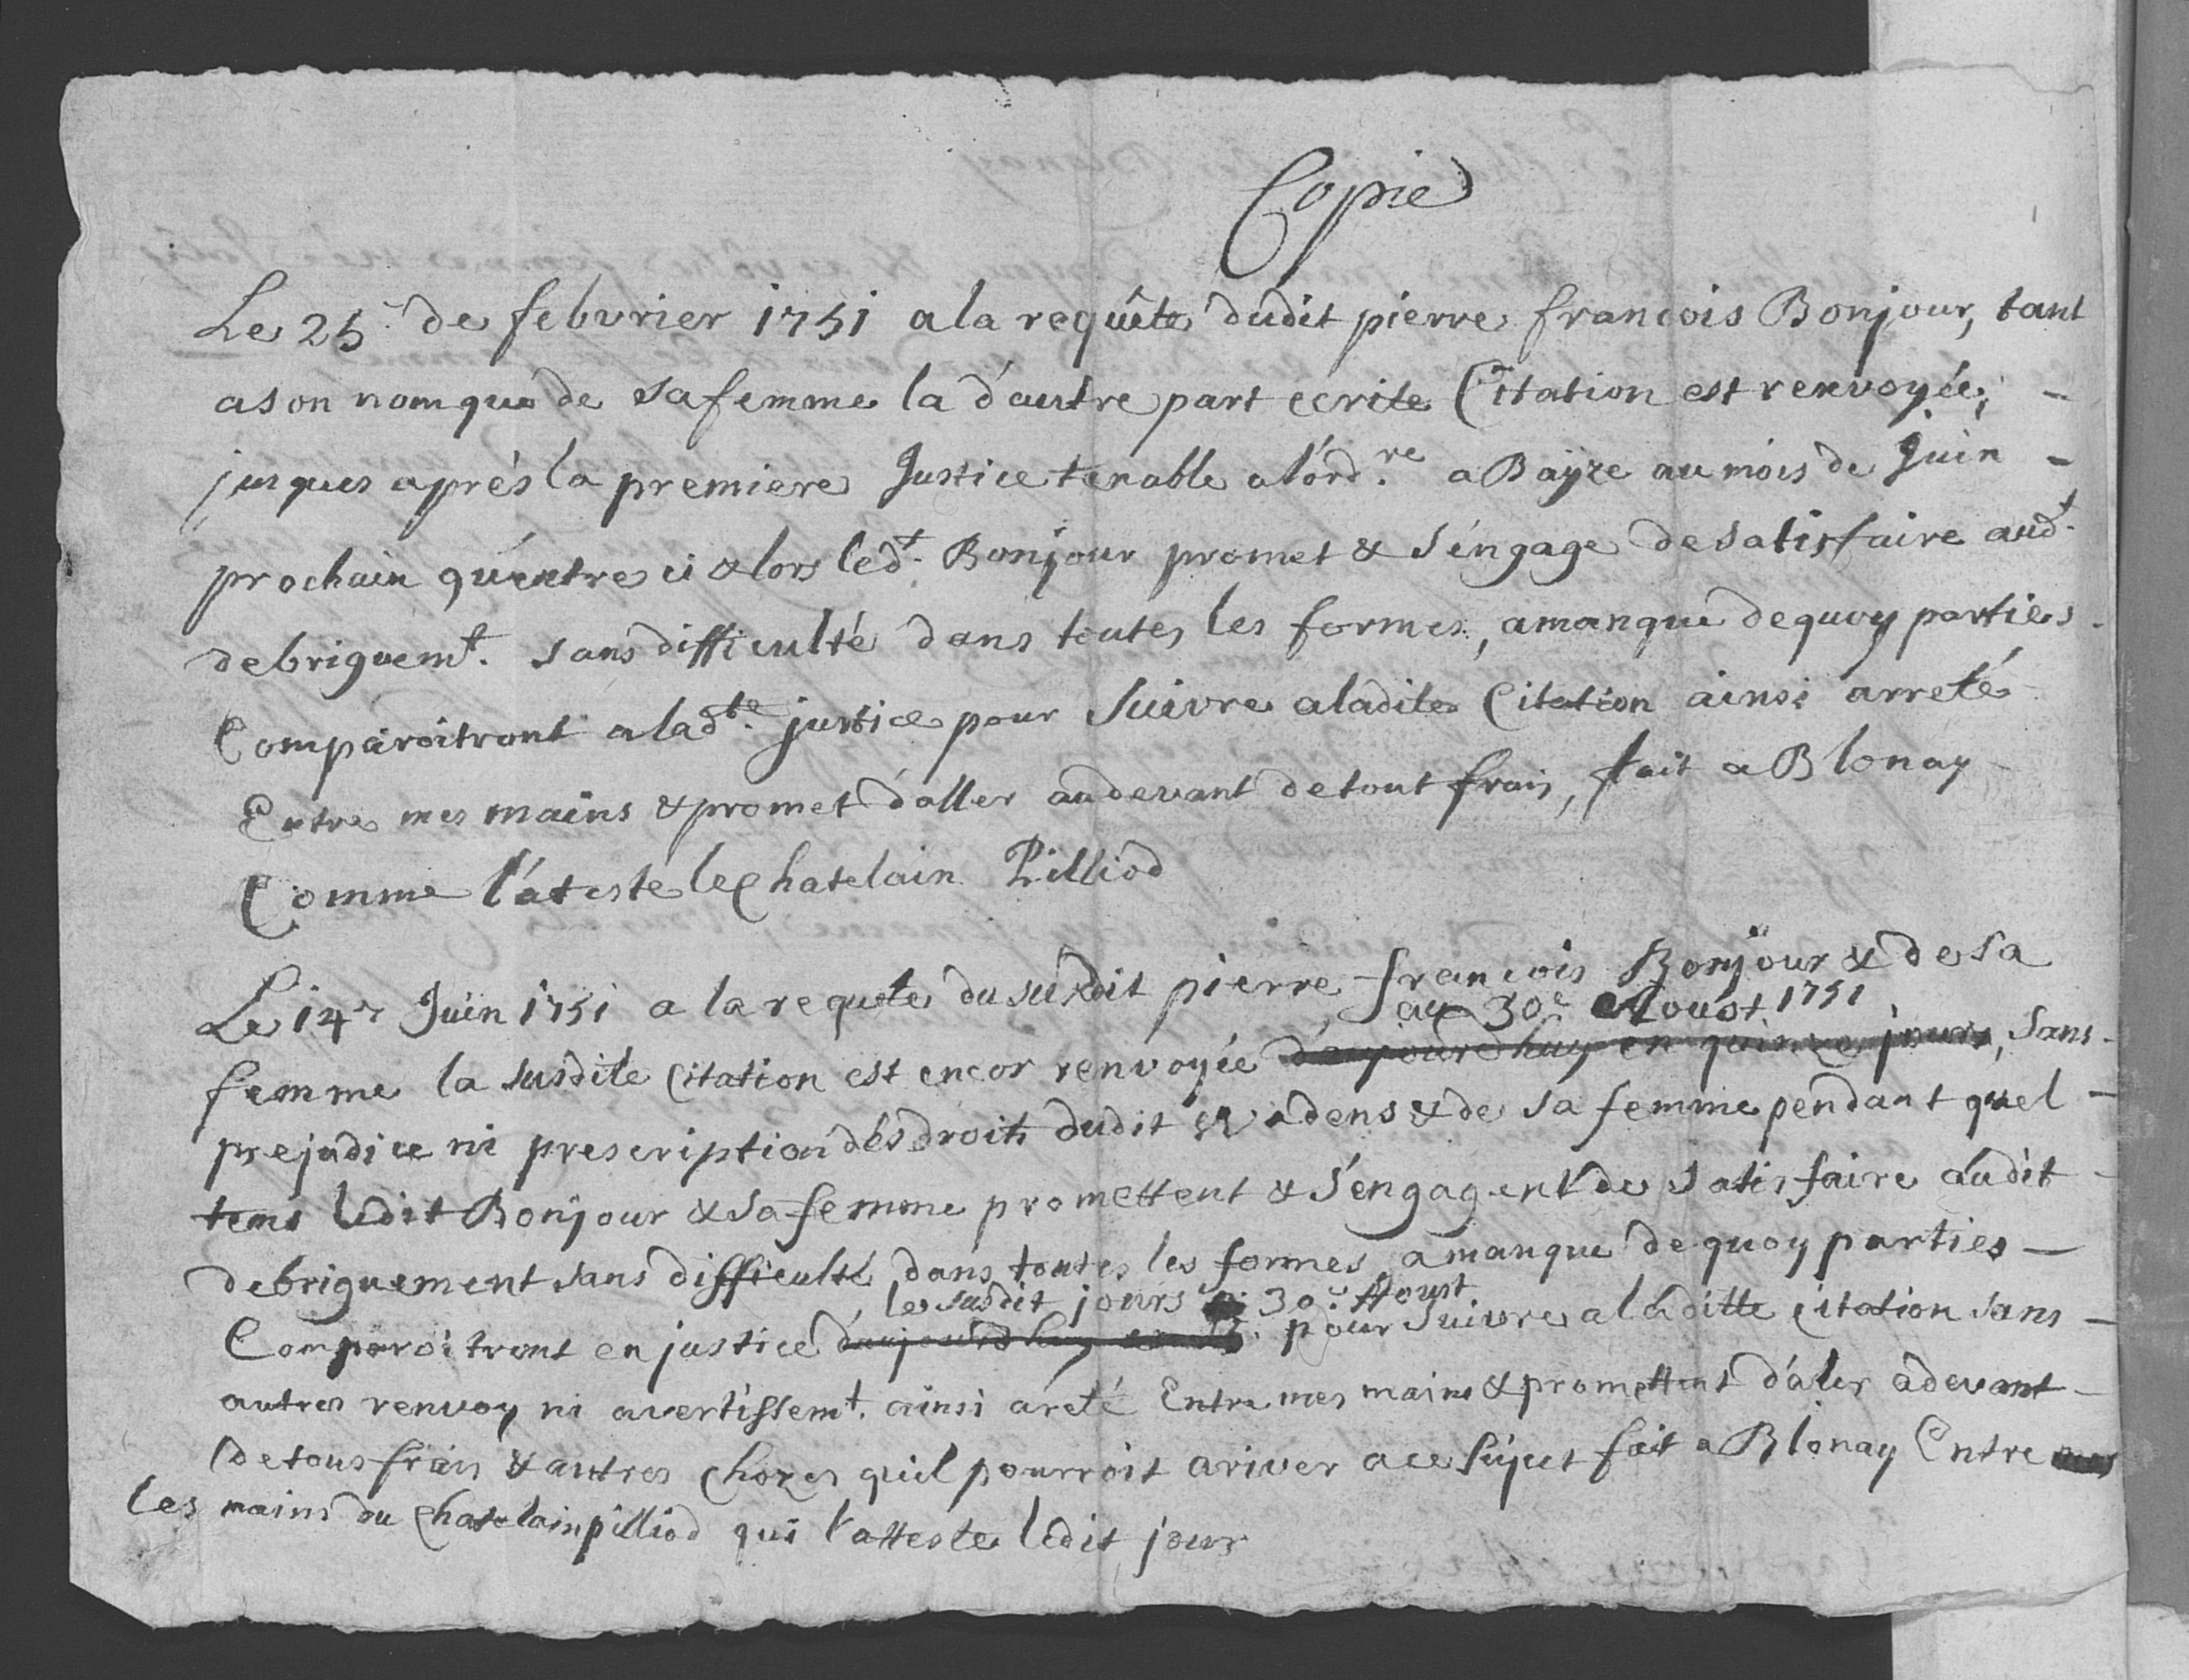 Copie
Le 25.e de febvrier 1751 a la requête dudit pierre francois Bonjour, tant
a son nom que de sa femme la d'autre part ecrite Citation est renvoyée, -
jusques aprés la premiere Justice tenable a l'ord.re a Bayze au mois de Juin -
prochain qu'entre ci & lors led.t Bonjour promet & s'éngage de satisfaire aud.t
debriguem.t sans difficulté dans toutes les formes, a manque de quoy parties
Comparoitront a lad.te justice pour suivre a ladite Citation ainsi arreté
Entre mes mains & promet d'aller audevant de tout frais, fait a Blonay
Comme l'ateste le Chatelain Pilliod
Le 14.e Juin 1751 a la requete du susdit pierre francois Bonjour & de sa
au 30.e Aoust 1751
femme la susdite Citation est encor renvoyée d'aujourdhuy en quinze jours, sans -
prejudice ni prescription dés droits dudit & de sa femme pendant quel -
tems ledit Bonjour & sa femme promettent & s'engagent de satisfaire audit -
debriguement sans difficulté dans toutes les formes a manque de quoy parties -
le susdit jours 30.e Aoust
Comparoitront en justice d'aujourdhuy en pour suivre a laditte citation sans -
autres renvoy ni avertissem.t ainsi areté Entre mes mains & promettent d'aler adevant -
de tous frais & autres chozes quil pourroit ariver a ce sujet fait a Blonay Entre mes
les mains du Chatelain pilliod qui l'atteste ledit jour